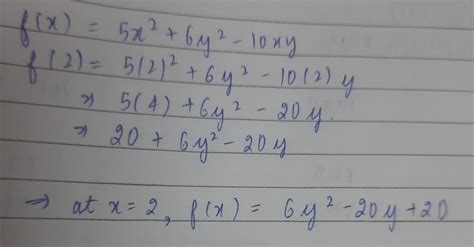 f(x) = 5x² + 6y² - 10xy
f(2) = 5(2)² + 6y² - 10(2)y
⇒ 5(4) + 6y² - 20y.
⇒ 20 + 6y² - 20y
⇒ at x = 2, f(x) = 6y² - 20y + 20